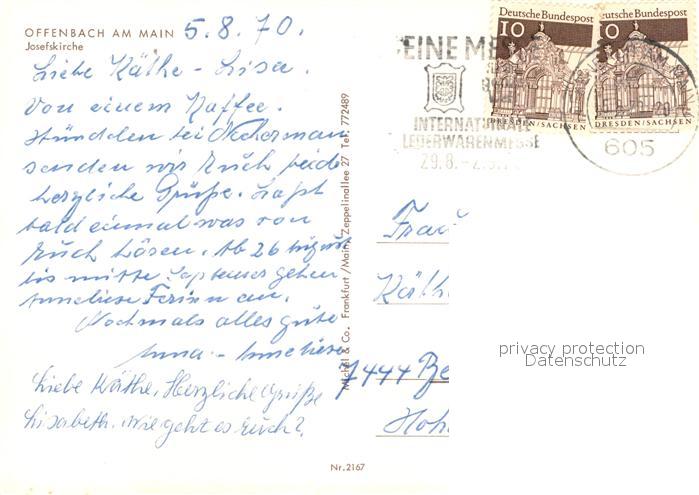 OFFENBACH AM MAIN 5.8.70.
Josefskirche
Liebe Käthe - Lisa.
Von einem Kaffee.
Stündchen bei Neckermann
senden wir Euch beide
herzliche Grüße. Laßt
bald einmal was von
Euch hören. Ab 26 August
bis mitte Septemer gehen
Anneliese Ferien an.
Nochmals alles gute
Anna - Anneliese
Liebe Käthe, Herzliche Grüße
Lisabeth. Wie geht es Euch?
Michel & Co. Frankfurt/Main, Zeppelinallee 27 Tel. 772489
Nr. 2167
EINE ME
INTERNATIONALE
LEDERWARENMESSE
29.8.-
10 Deutsche Bundespost
DRESDEN/SACHSEN
Deutsche Bundespost
DRESDEN/SACHSEN
605
Frau
Käth
7444 Be
Hoh
privacy protection
Datenschutz